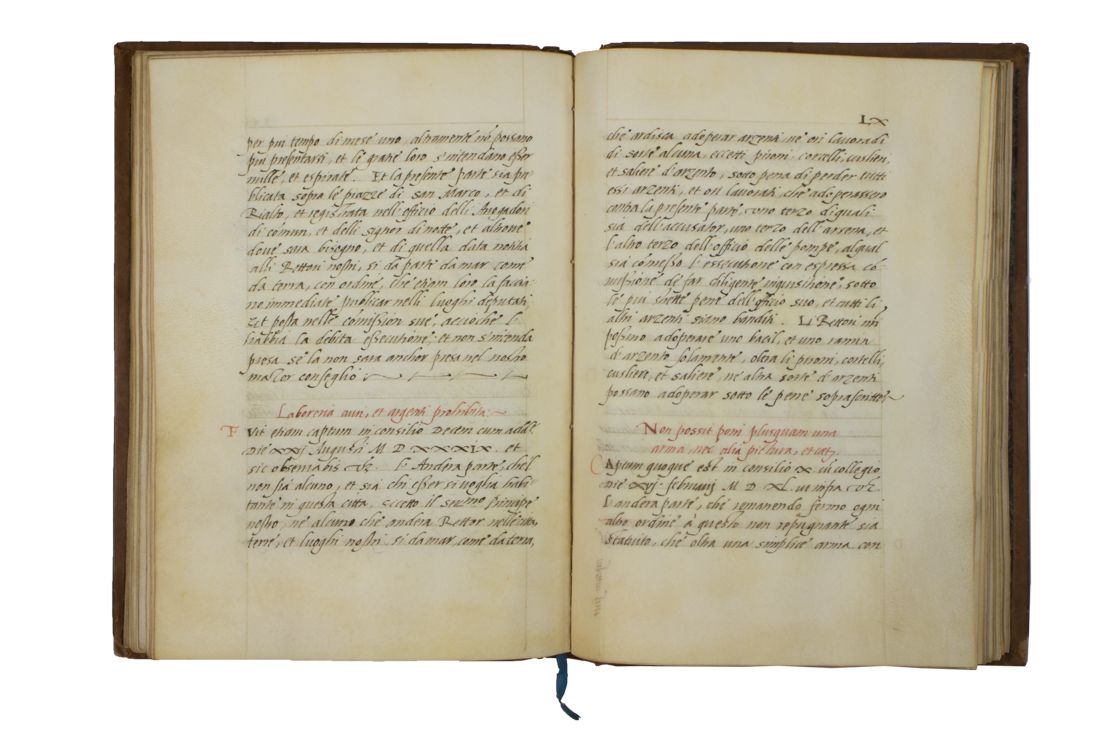 per piu tempo di mese uno, altramente nõ possano
piu presentarsi, et le gratie loro s'intendano esser
nulle, et espirate. Et la presente parte sia pu
blicata sopra le piazze di san Marco, et di
Rialto, et registrata nell'officio delli Auogadori
di comun, et delli signor di notte, et altroue
doue sara bisogno, et di quella data notitia
alli Rettori nostri, si da parte da mar come
da terra, con ordine, che etiam loro la faccia
no immediate publicar nelli luoghi deputati
Et posta nelle comission sue, accioche l'
habbia la debita essecutione, et non s'intenda
presa se la non sara anchor presa nel nostro
maggor conseglio
Laboreria auri, et argenti prohibita
Fvit etiam captum in consilio Decem cum addit.
Die xxij Augusti M D XXXIX. et
sic obseruabis vz. L'Andera parte, chel
non sia alcuno, et sia chi esser si voglia habi
tante in questa citta, eccetto il sermo Principe
nostro, ne alcuno che andera Rettor nelle citta,
terre, et luoghi nostri si da mar, come da terra,
LX
che ardisca adoperar argenti, ne ori lauorati
di sorte alcuna, eccetti pironi, cortelli, cuslieri,
et saliere d'argento, sotto pena di perder tutti
essi argenti, et ori lauorati, che adoperassero
contra la presente parte. vno terzo di quali
sia dell'accusator, uno terzo dell'arsena, et
l'altro terzo dell'officio delle pompe, alqual
sia cõmessa l'essecutione con espressa cõ
missione de far diligente inquisitione, sotto
le piu strette pene dell'officio suo, et tutti li
altri argenti siano banditi. Li Rettori nri
possino adoperare uno bacil, et uno ramin
d'argento solamente, oltra li pironi, cortelli,
cusliere, et saliere, ne altra sorte d'argenti
possano adoperar sotto le pene soprascritte
Non possit poni plusquam una
arma, nec alia pictura, et cet.
Captum quoque est in consilio x. cũ collegio
die xvj februarij M D XL. ut infra vz.
L'andera parte, che remanendo fermo ogni
altro ordine a questo non repugnante sia
statuito, che oltra una simplice arma con